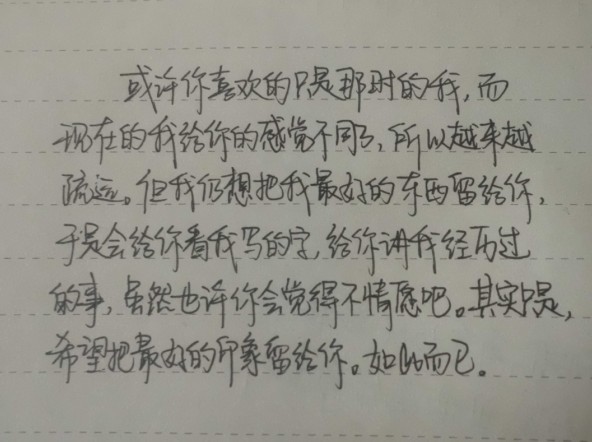 或许你喜欢的只是那时的我,而
现在的我给你的感觉不同了,所以越来越
疏远。但我仍想把我最好的东西留给你,
于是会给你看我写的字,给你讲我经历过
的事,虽然也许你会觉得不情愿吧。其实只是,
希望把最好的印象留给你。如此而已。